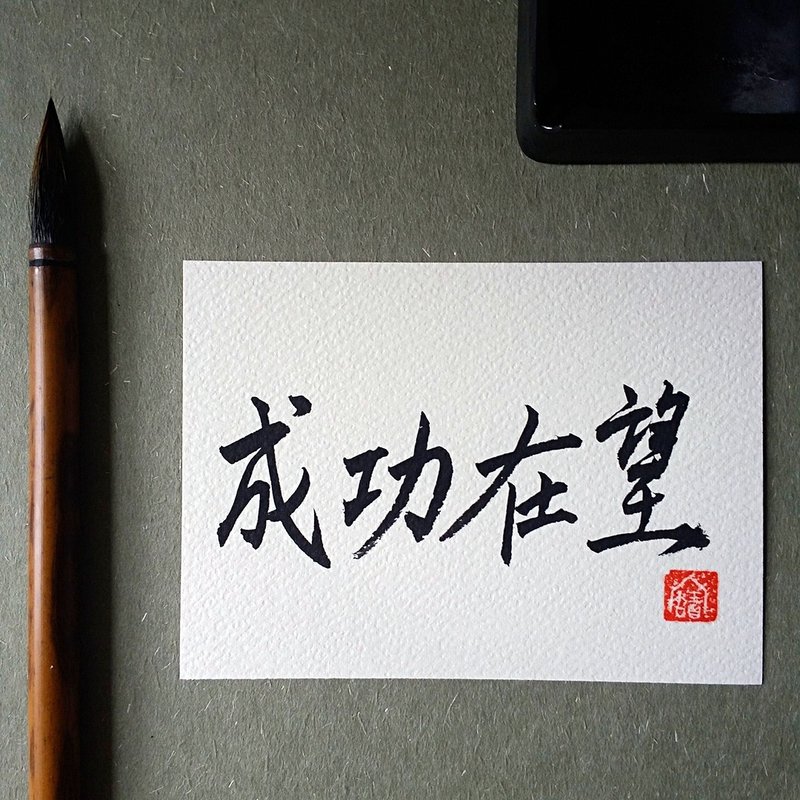 成功在望